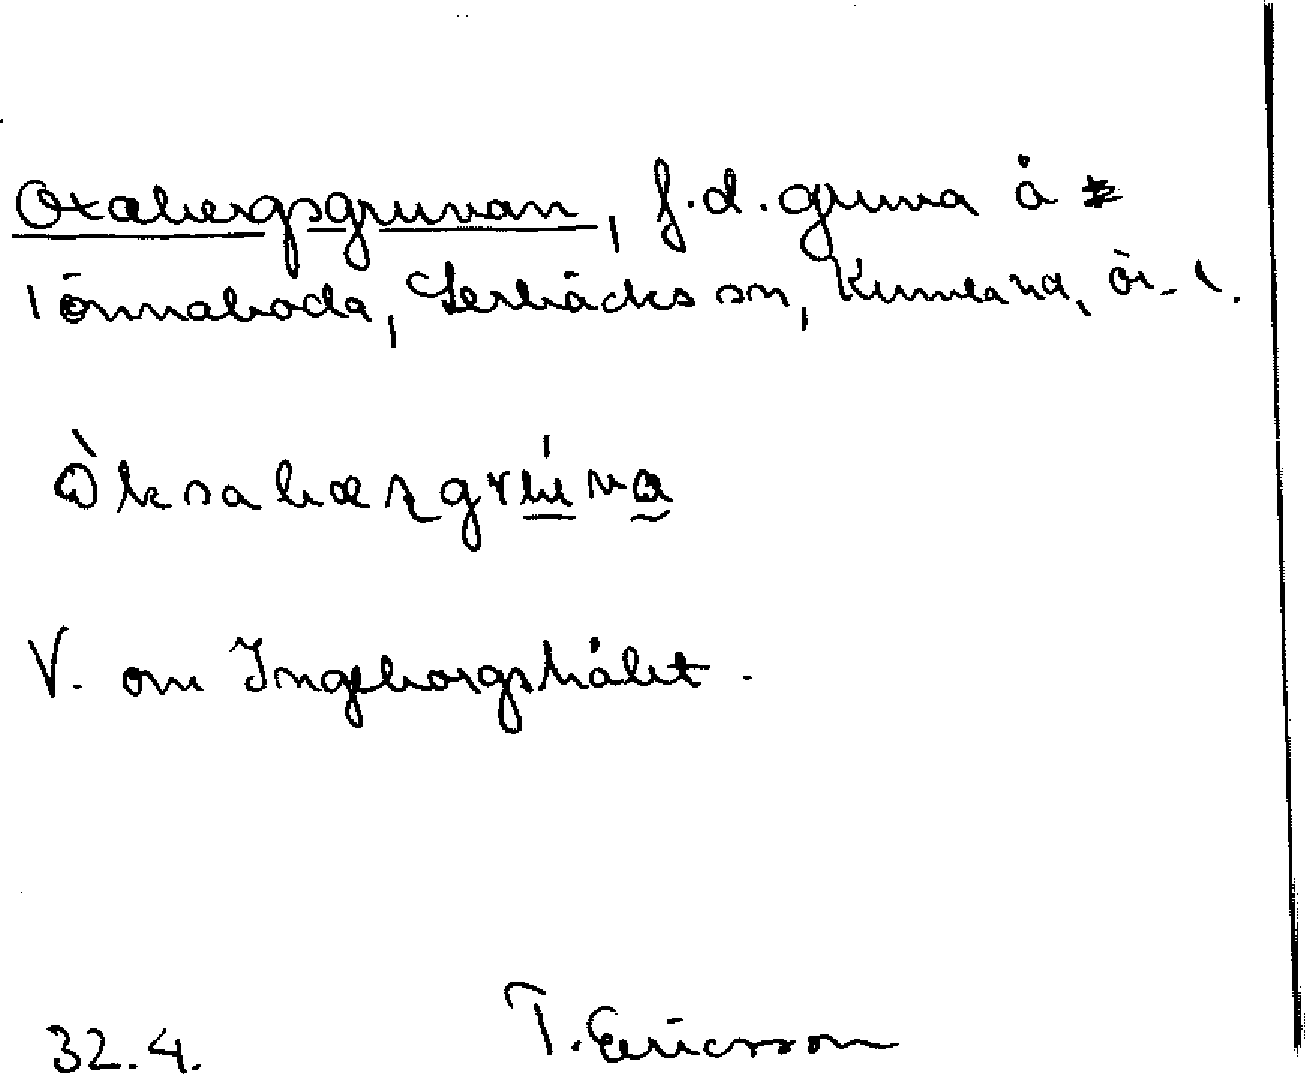 Oxabergsgruvan, f.d. gruva å
Tönnaboda, Lerbäcks sn, Kumla hd, Ör. l.
Òksabærgrúva
V. om Ingeborgshålet.
32.4. T. Ericsson